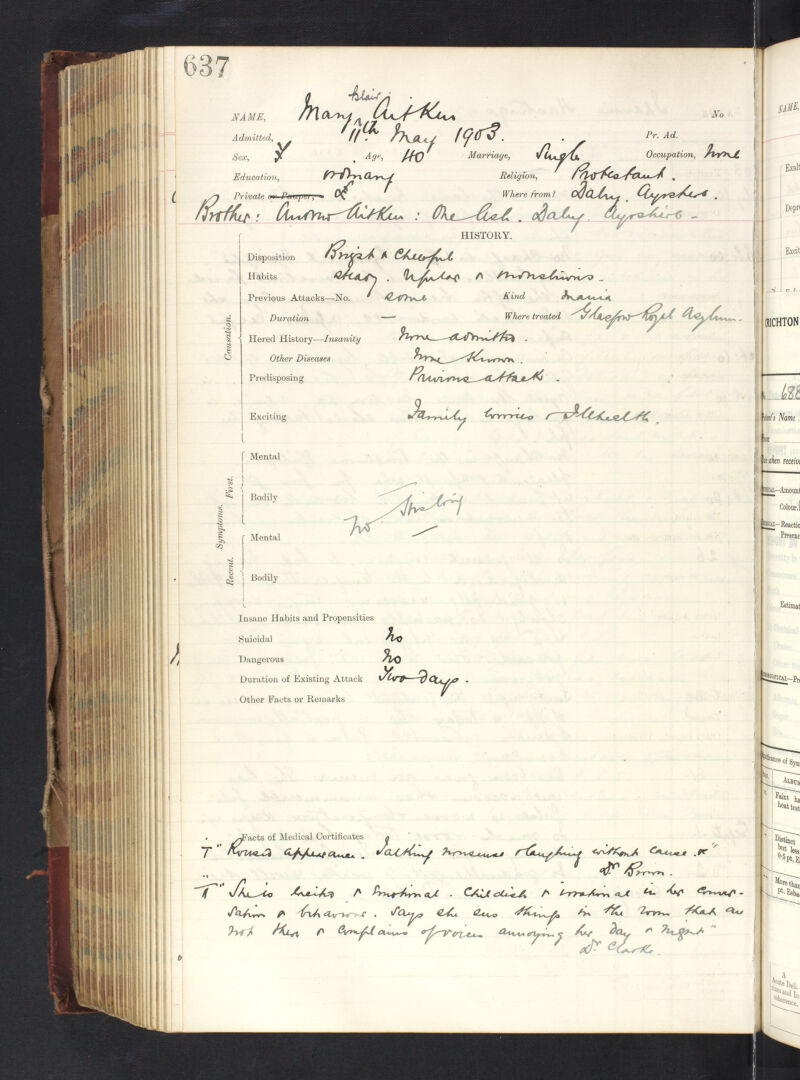 637
Blair
NAME, Mary Aitken No
Admitted, 11th May 1903. Pr. Ad.
Sex, F. Age, 40 Marriage, Single Occupation, None
Education, ordinary Religion, Protestant.
Private or Pauper, Where from? Dalry. Ayrshire.
Brother: Andrew Aitken: One Ash. Dalry. Ayrshire-
HISTORY.
Causation.
Disposition Bright & cheerful
Habits steady. regular & industrious.
Previous Attacks—No. some Kind mania
Duration — Where treated Glasgow Royal Asylum.
Hered History—Insanity None admitted.
Other Diseases None Known.
Predisposing Previous attack.
Exciting Family worries & Ill health.
Symptoms.
First.
Mental
Bodily
No History
Recent.
Mental
Bodily
Insane Habits and Propensities
Suicidal No
Dangerous No
Duration of Existing Attack Two days.
Other Facts or Remarks
Facts of Medical Certificates
I " Roused appearance. Talking nonsense & laughing without cause. "
Dr Brown.
II " She is excited & Emotional. Childish & irrational in her conver-
sation & behaviour. Says she sees things in the room that are
not there & complains of voices annoying her day & night"
Dr Clarke.
NAME,
Exalt
Depre
Excit
RICHTON
688
Patient's Name
Date when receive
Amoun
Colour.
Reactio
Presenc
Estimat
Significance of Sym
ALBU
Faint ha
heat test
Distinct
but less
0·5 pt. E
More than
pt. Esba
A
Acute Deli
rium and In
coherence.